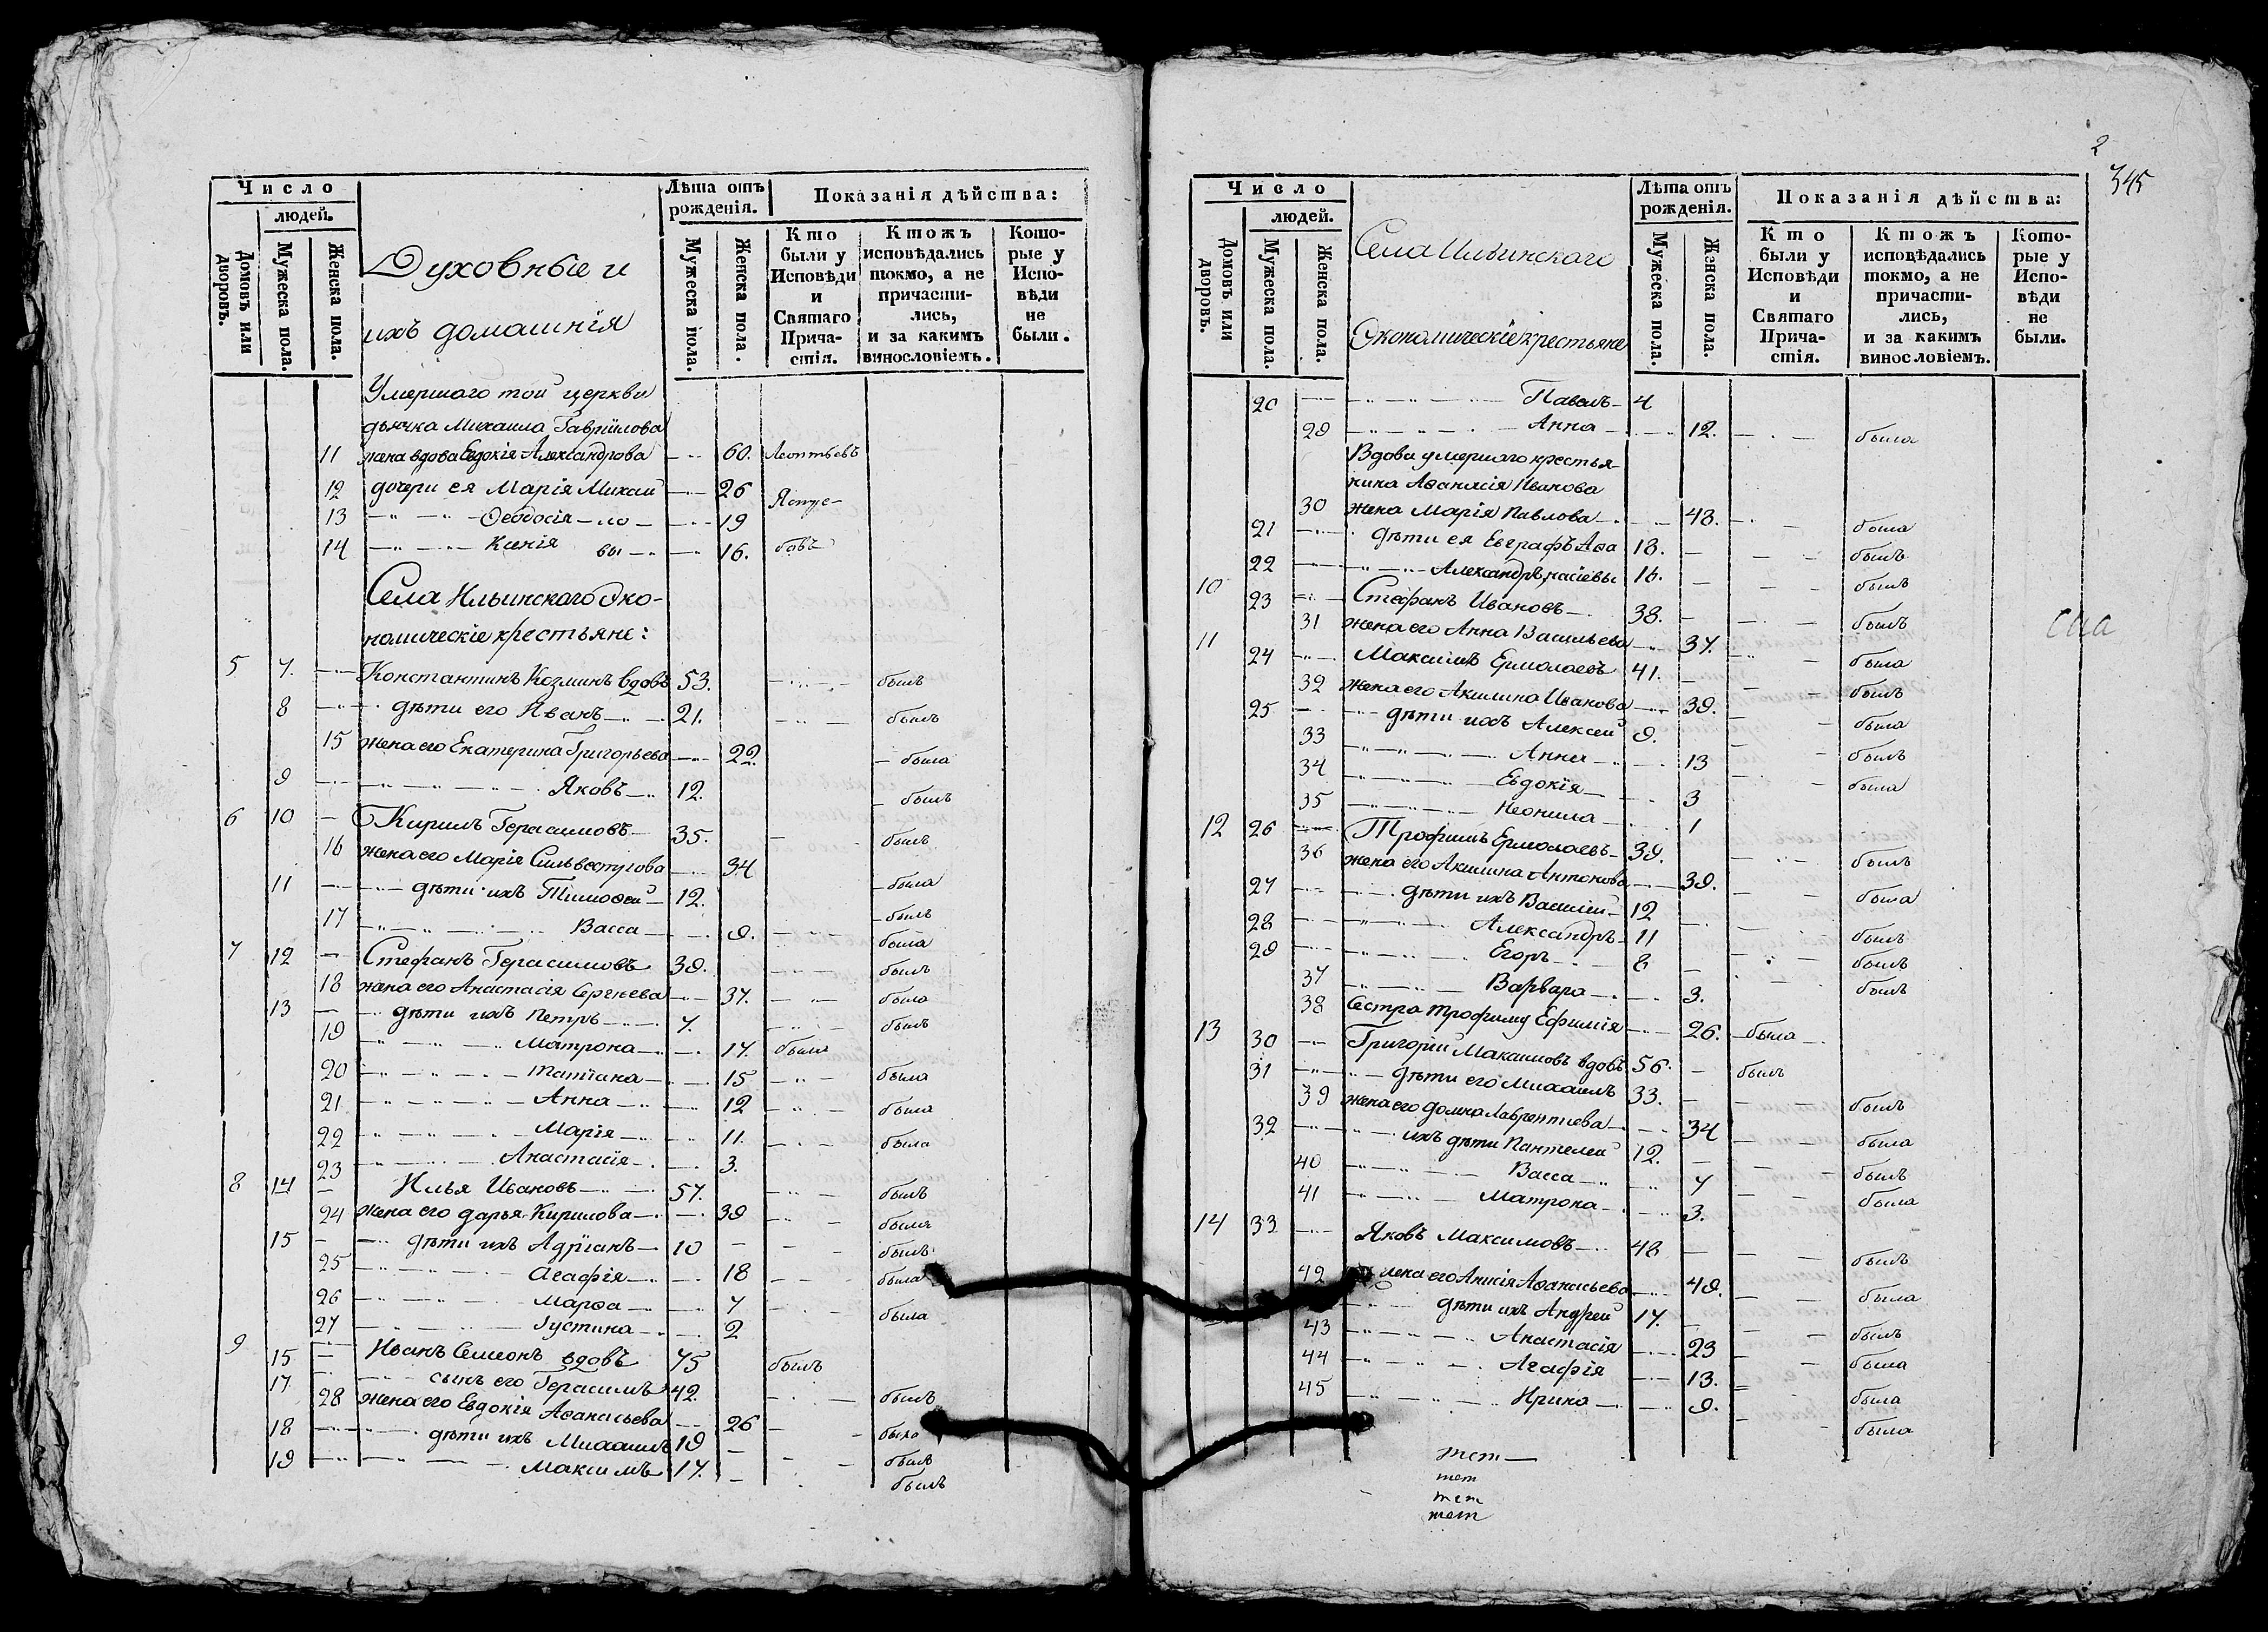 Число
людей.
Домовъ или дворовъ.
Мужеска пола.
Женска пола.
Духовные и
ихъ домашнія
Лѣта отъ рожденія.
Мужеска пола.
Женска пола.
Показанія дѣйства:
Кто были у Исповѣди и Святаго Прича- стія.
Ктожъ исповѣдались токмо, а не причасти- лись, и за какимъ винословіемъ.
Кото- рые у Испо- вѣди не были.
Умершаго той церкви
дьячка Михаила Гавріилова
11 жена вдова Евдокія Александрова 60. Леонтьевъ
12 дочери ея Марія Михаи 26
13 Ѳеодосія ло 19
14 Ксенія вы 16. бовъ
Села Ильинскаго Эко-
номическіе крестьяне:
5 7. Константинъ Козминъ вдовъ 53. былъ
8 дѣти его Иванъ 21. былъ
15 жена его Екатерина Григорьева 22. была
9 Яковъ 12. былъ
6 10 Кирилъ Герасимовъ 35. былъ
16 жена его Марія Сильвестрова 34 была
11 дѣти ихъ Тимоѳей 12. былъ
17 Васса 9. была
7 12 Стефанъ Герасимовъ 39. былъ
18 жена его Анастасія Сергѣева 37. была
13 дѣти ихъ Петръ 7. былъ
19 Матрона 17. была
20 Татіана 15 была
21 Анна 12 была
22 Марія 11. была
23 Анастасія 3.
8 14 Илья Ивановъ 57. былъ
24 жена его дарья Кирилова 39 была
15 дѣти ихъ Адріанъ 10 былъ
25 Агафія 18 была
26 Марѳа 7 была
27 Іустина 2
9 15 Иванъ Семеонъ вдовъ 75 былъ
17 сынъ его Герасимъ 42. былъ
28 жена его Евдокія Аѳанасьева 26 была
18 дѣти ихъ Михаилъ 19 былъ
19 Максимъ 17. былъ
2
345
Число
людей.
Домовъ или дворовъ.
Мужеска пола.
Женска пола.
Села Ильинскаго
Экономическіе крестьяне
Лѣта отъ рожденія.
Мужеска пола.
Женска пола.
Показанія дѣйства:
Кто были у Исповѣди и Святаго Прича- стія.
Ктожъ исповѣдались токмо, а не причасти- лись, и за какимъ винословіемъ.
Кото- рые у Испо- вѣди не были.
20 Павелъ 4
29 Анна 12. была
Вдова умершаго крестья-
нина Аѳанасія Иванова
30 жена Марія Павлова 43. была
21 дѣти ея Евграфъ Аѳа 18. былъ
22 Александръ насіевы 16. былъ
10 23 Стефанъ Ивановъ 38. былъ
31 жена его Анна Васильева 37. была
11 24 Максимъ Ермолаевъ 41. былъ
32 жена его Акилина Иванова 39. была
25 дѣти ихъ Алексей 9. былъ
33 Анна 13 была
34 Евдокія 3
35 Неонила 1
12 26 Трофимъ Ермолаевъ 39. былъ
36 жена его Акилина Антонова 39. была
27 дѣти ихъ Василій 12 былъ
28 Александръ 11 былъ
29 Егоръ 8 былъ
37 Варвара 3.
38 Сестра Трофиму Ефимія 26. была
13 30 Григорій Максимовъ вдовъ 56. былъ
31 дѣти его Михаилъ 33. былъ
39 жена его домна Лаврентиева 34 была
32 ихъ дѣти Пантелей 12. былъ
40 Васса 7 была
41 Матрона 3.
14 33 Яковъ Максимовъ 48 былъ
42 жена его Анисія Аѳанасьева 49. была
дѣти ихъ Андрей 17. былъ
43 Анастасія 23 была
44 Агафія 13. была
45 Ирина 9. была
тет
тет
тет
тет